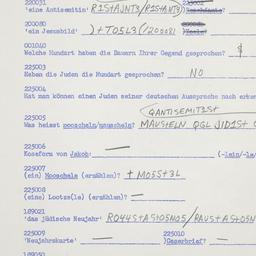 220031
'eine Antisemitin' R1S+AJNT3/R1S+A)NT3)
200080
'ein Jesusbild' )+TO5L3(/200081
001040
Welche Hundert haben die Bauern Ihrer Gegend gesprochen?
225003
Haben die Juden die Hundert gesprochen? NO
225004
Hat man können einen Juden seiner deutschen Aussprache nach erken
(ANTISEMITIST
225005
Was heisst mooscheln/mauscheln? MAUSTELN OGL JIDIST
225006
Koseform von Jakob: — (-lein/-le
225007
(ein) Mooschele (erzählen)? + MO5S+3L
225008
(eine) Lootze(le) (erzählen)? —
189021
'das jüdische Neujahr' RO44S+A5105NO5/RAUS+A5+O5N
225009
'Neujahrskarte' —
225010
)Gaserbrief? —
189050